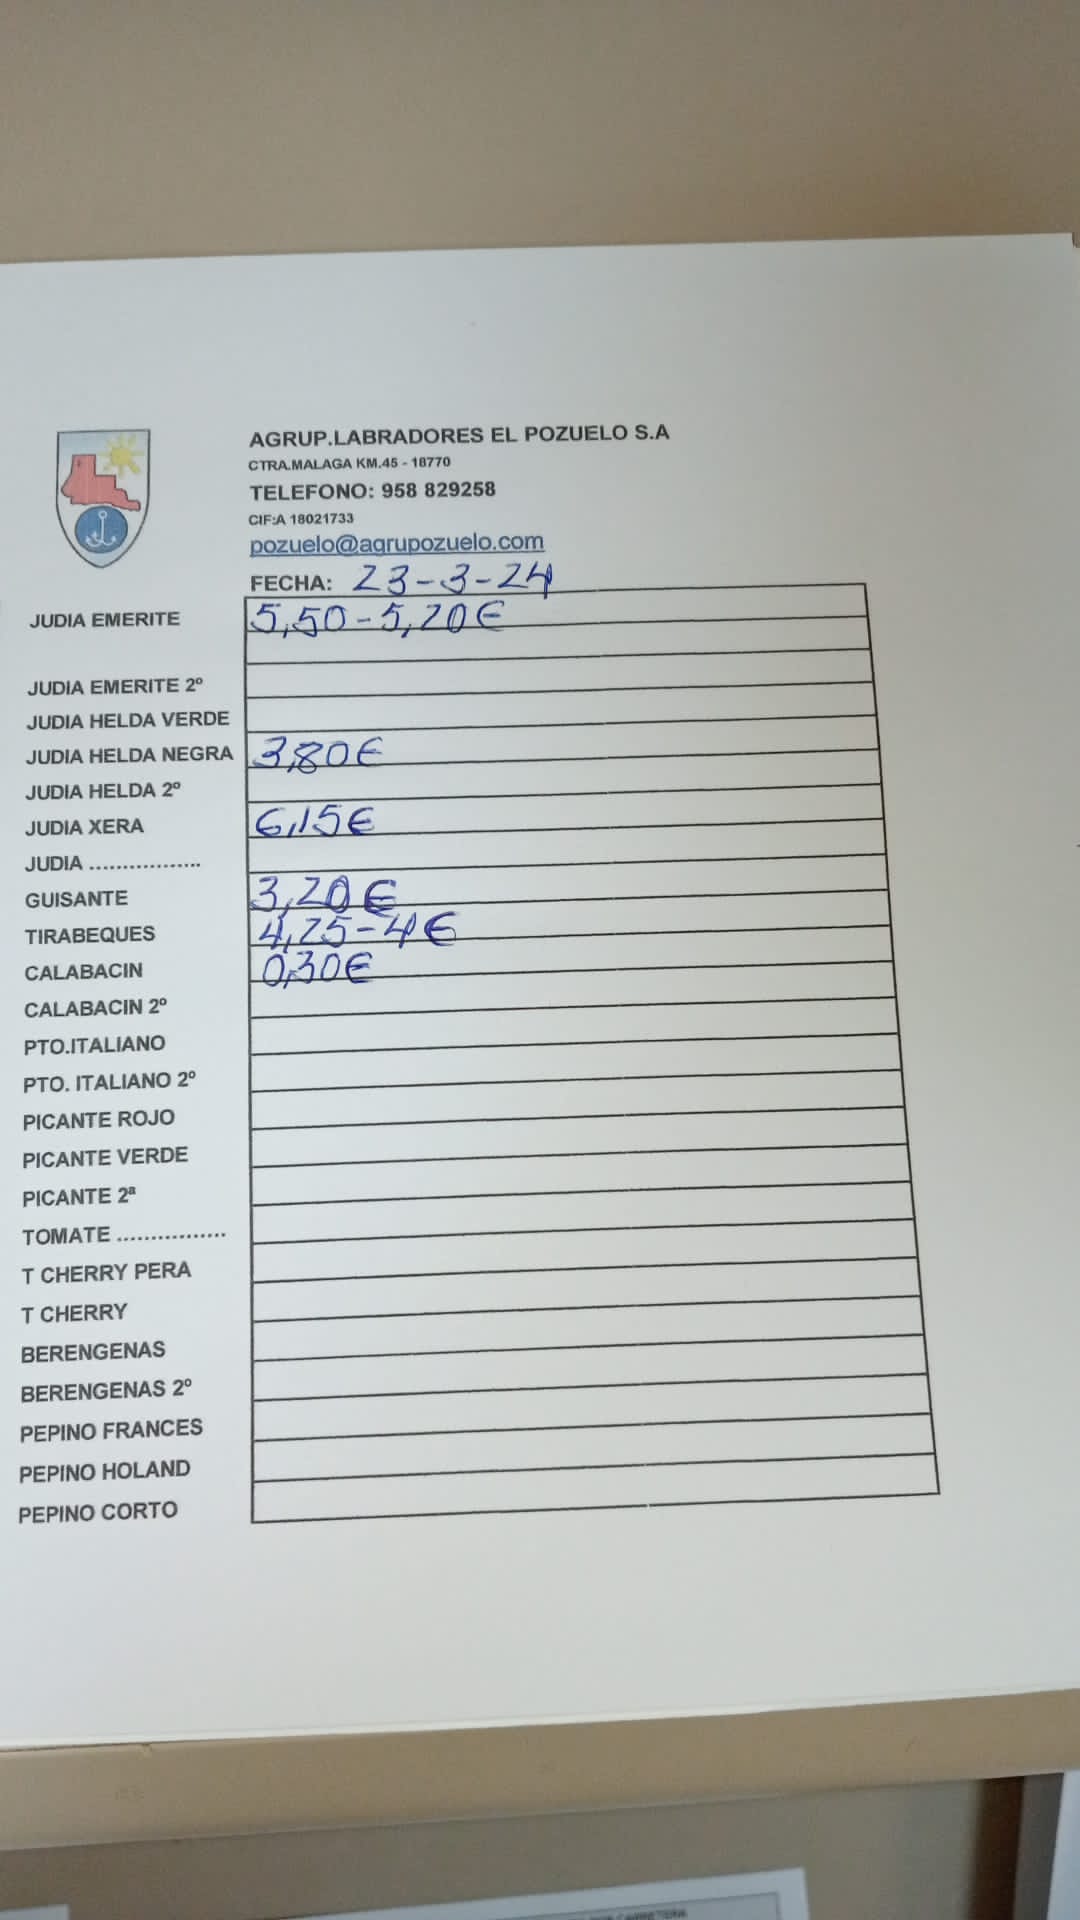 AGRUP.LABRADORES EL POZUELO S.A
CTRA.MALAGA KM.45 - 18770
TELEFONO: 958 829258
CIF:A 18021733
pozuelo@agrupozuelo.com
FECHA: 23-3-24
JUDIA EMERITE 5,50-5,20€
JUDIA EMERITE 2º
JUDIA HELDA VERDE
JUDIA HELDA NEGRA 3,80€
JUDIA HELDA 2º
JUDIA XERA 6,15€
JUDIA .................
GUISANTE 3,20€
TIRABEQUES 4,25-4€
CALABACIN 0,30€
CALABACIN 2º
PTO.ITALIANO
PTO. ITALIANO 2º
PICANTE ROJO
PICANTE VERDE
PICANTE 2ª
TOMATE ................
T CHERRY PERA
T CHERRY
BERENGENAS
BERENGENAS 2º
PEPINO FRANCES
PEPINO HOLAND
PEPINO CORTO
CARRETERA